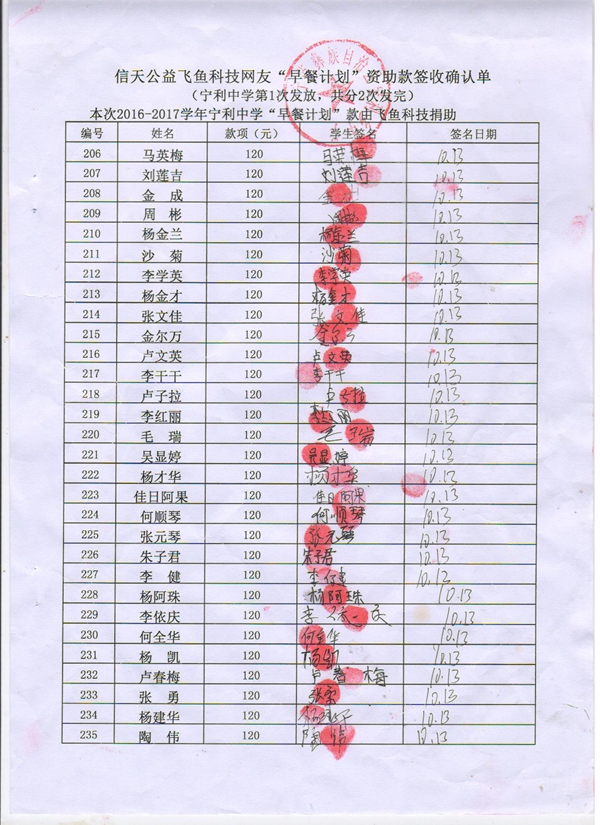 信天公益飞鱼科技网友“早餐计划”资助款签收确认单
（宁利中学第1次发放，共分2次发完）
本次2016-2017学年宁利中学“早餐计划”款由飞鱼科技捐助
编号 姓名 款项（元） 学生签名 签名日期
206 马英梅 120 马英梅 10.13
207 刘莲吉 120 刘莲吉 10.13
208 金 成 120 金 10.13
209 周 彬 120 周彬 10.13
210 杨金兰 120 杨金兰 10.13
211 沙 菊 120 沙菊 10.13
212 李学英 120 李学英 10.13
213 杨金才 120 杨金才 10.13
214 张文佳 120 张文佳 10.13
215 金尔万 120 金尔万 10.13
216 卢文英 120 卢文英 10.13
217 李干干 120 李干干 10.13
218 卢子拉 120 卢子拉 10.13
219 李红丽 120 10.13
220 毛 瑞 120 毛瑞 10.13
221 吴显婷 120 吴显婷 10.13
222 杨才华 120 杨才华 10.13
223 佳日阿果 120 佳日阿果 10.13
224 何顺琴 120 何顺琴 10.13
225 张元琴 120 张元琴 10.13
226 朱子君 120 朱子君 10.13
227 李 健 120 李健 10.13
228 杨阿珠 120 杨阿珠 10.13
229 李依庆 120 李依庆 10.13
230 何全华 120 何全华 10.13
231 杨 凯 120 杨凯 10.13
232 卢春梅 120 卢春梅 10.13
233 张 勇 120 张勇 10.13
234 杨建华 120 10.13
235 陶 伟 120 陶伟 10.13